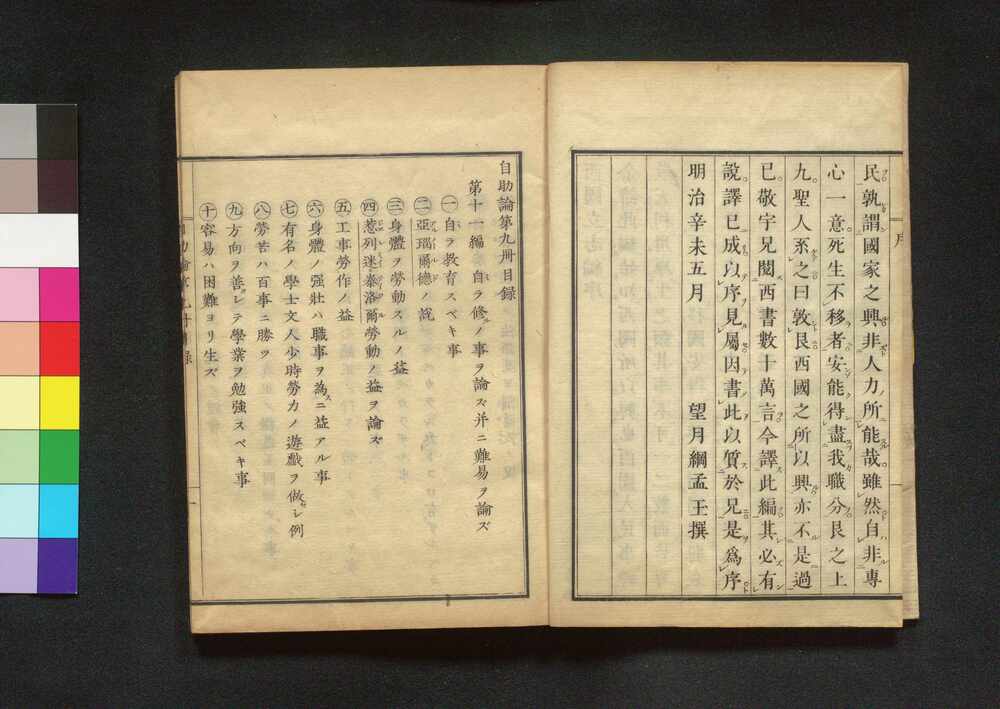 民孰謂國家之興非人力所能哉雖然自非專
心一意死生不移者安能得盡我職分艮之上
九聖人系之曰敦艮西國之所以興亦不是過
已敬宇兄閱西書數十萬言今譯此編其必有
說譯已成以序見屬因書此以質於兄是爲序
明治辛未五月 望月綱孟王撰
序
自助論第九冊目録
第十一編 自ラ修ムル事ヲ論ズ并ニ難易ヲ論ズ
㊀自ラ教育スベキ事
㊁亞瑙爾德ノ說
㊂身體ヲ勞動スルノ益
㊃惹列迷泰洛爾勞動ノ益ヲ論ズ
㊄工事勞作ノ益
㊅身體ノ强壯ハ職事ヲ為スニ益アル事
㊆有名ノ學士文人少時勞力ノ遊戯ヲ做セシ例
㊇勞苦ハ百事ニ勝ツ
㊈方向ヲ善シテ學業ヲ勉強スベキ事
㊉容易ハ困難ヨリ生ズ